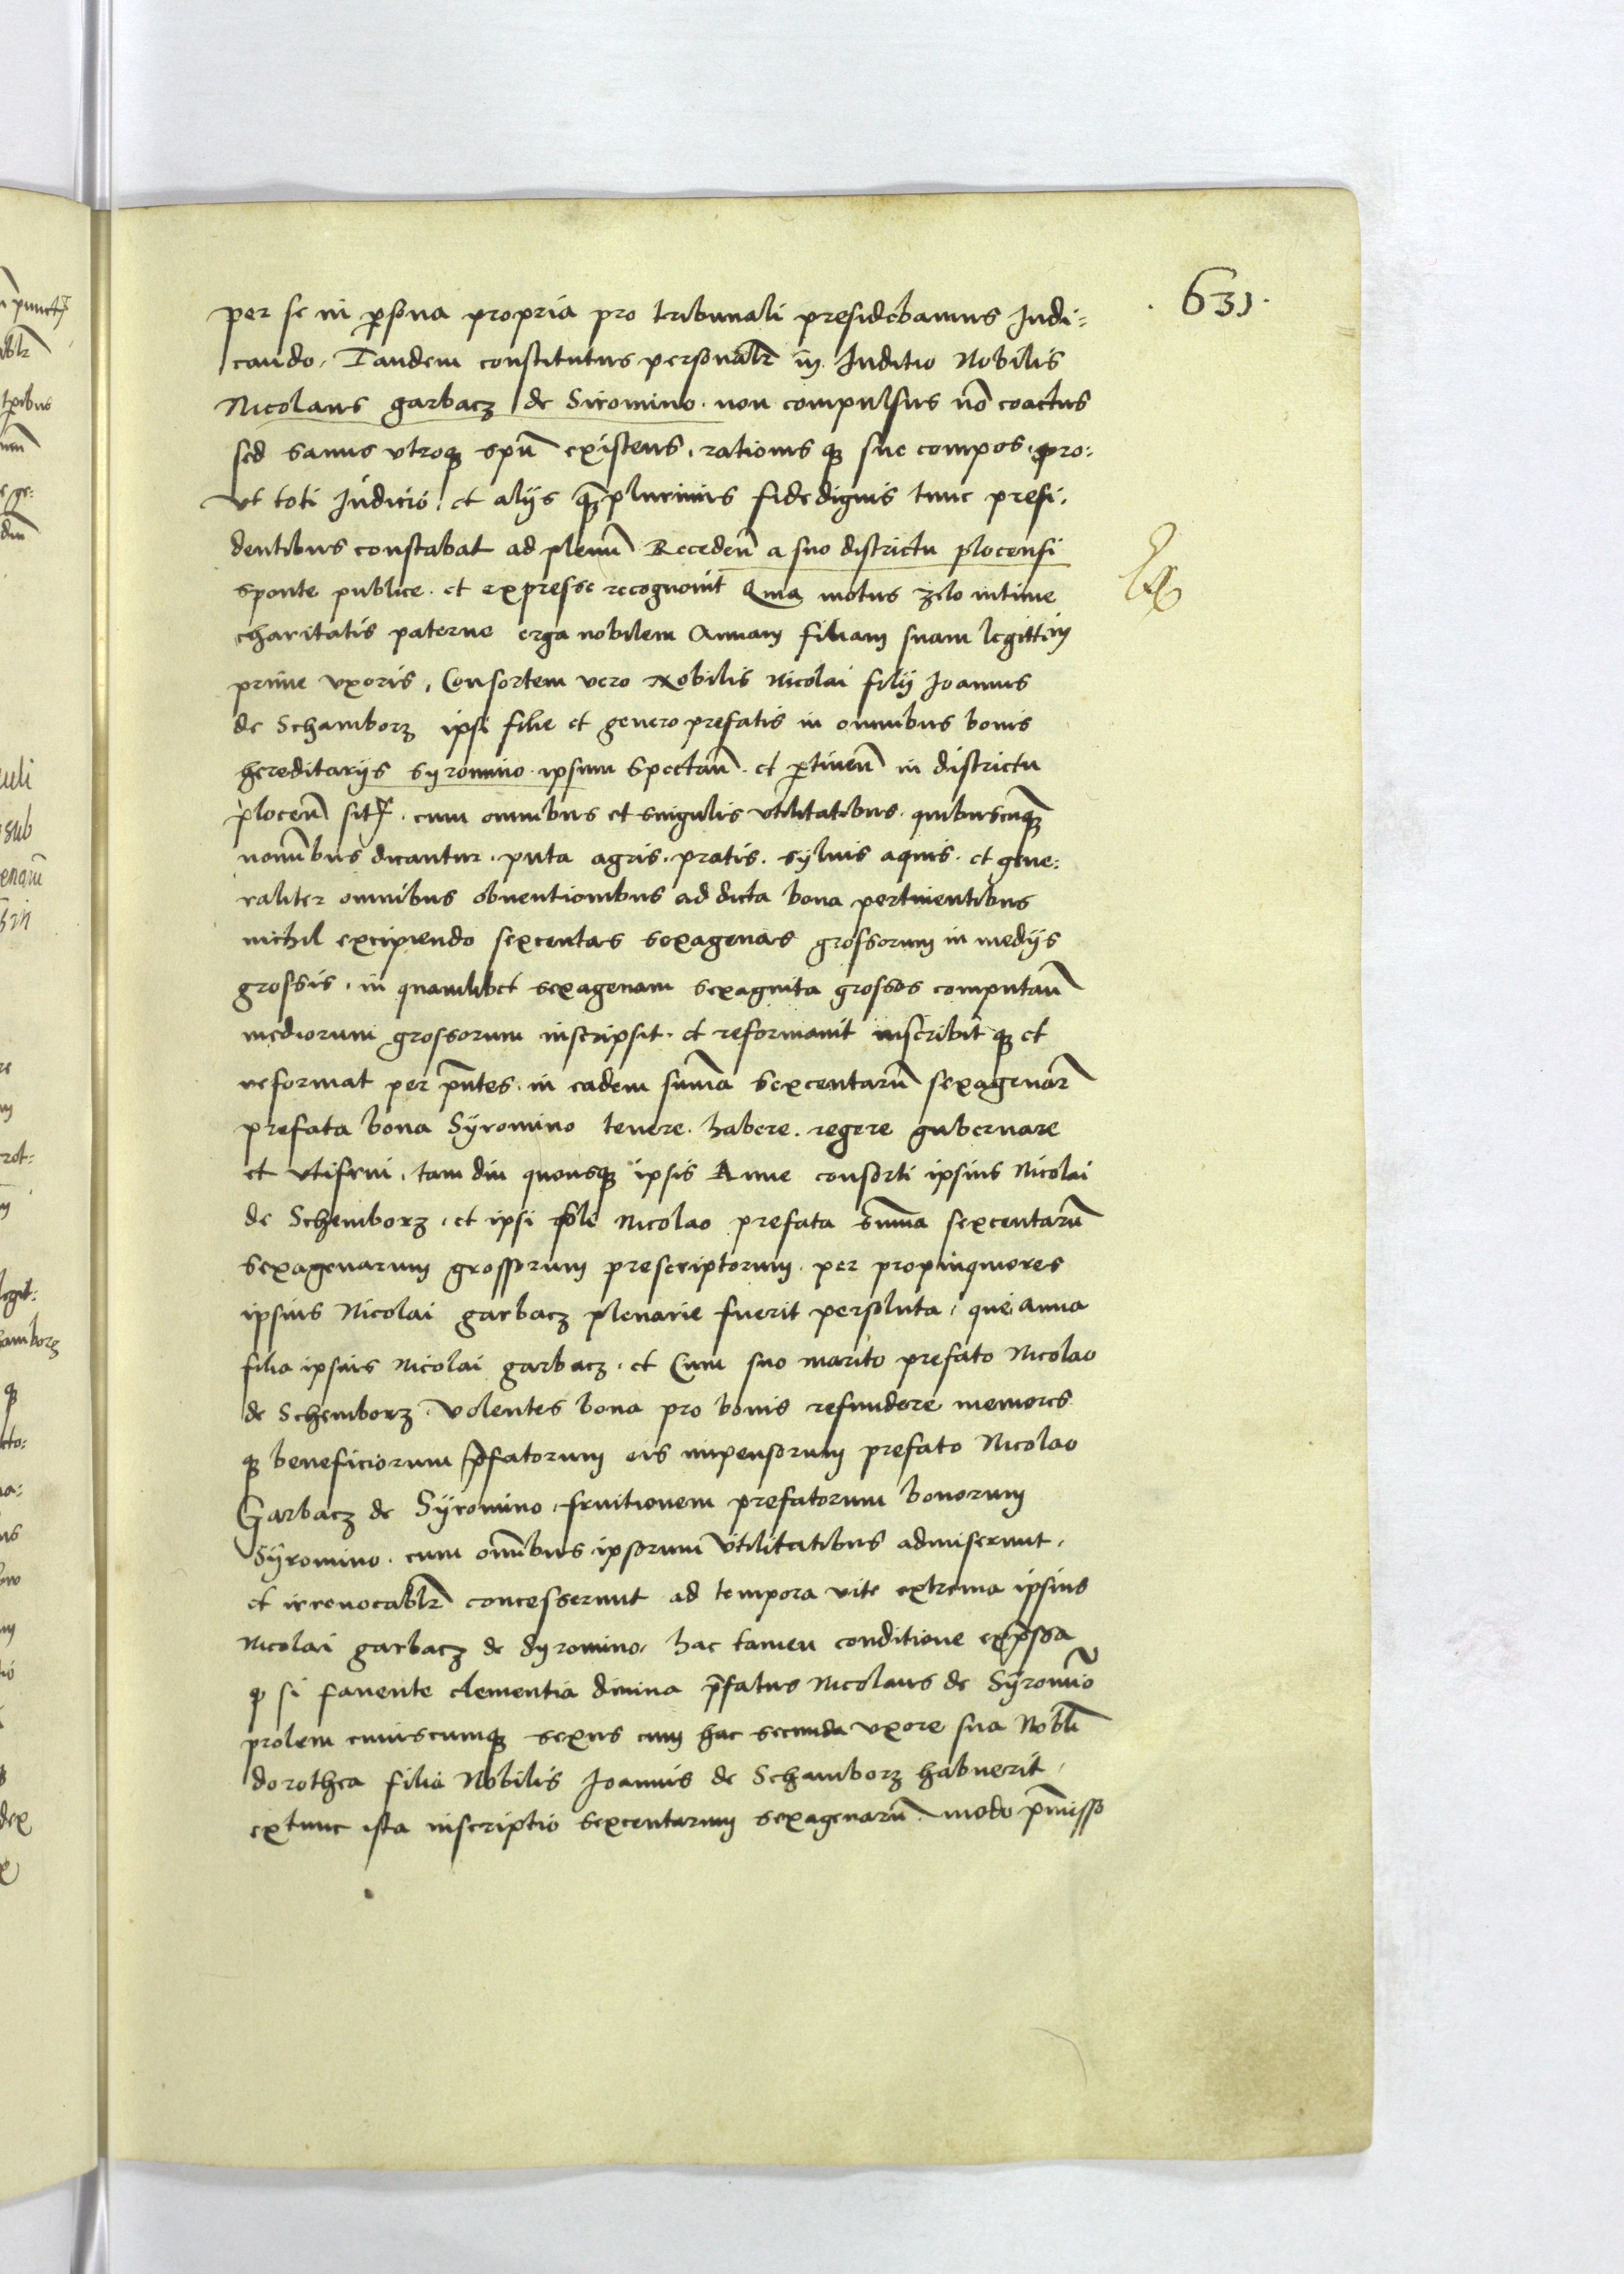 . 631.
per se in p̱sona propria pro tribunali presidebamus Judi:
cando. Tandem constitutus personalr̄ in Juditio Nobilis
Nicolaus garbacz de Siromino. non compulsus nō coactus
sed sanus vtroqꝫ spū existens. rationis qꝫ sue compos. pro:
vt toti Judicio. et alijs qꝫplurimis fidedignis tunc presi.
dentibus constabat ad plenū Recedeñ a suo districtu plocensi
sponte publice. et expresse recognouit Quia motus zelo intime
charitatis paterne erga nobilem Annam filiam suam legittim
prime vxoris, Consortem vero Nobilis Nicolai filij Joannis
de Schamborz ipsi filie et genero prefatis in omnibus bonis
hereditarijs syromino. ipsum Spectañ. et p̱tineñ in districtu
ploceñ sitꝭ. cum omnibus et singulis vtilitatibus. quibuscūqꝫ
nomībus dicantur. puta agris. pratis. syluis aquis. et gene:
raliter omnibus obuentionibus ad dicta bona pertinentibus
nichil excipiendo sexcentas sexagenas grossorum in medijs
grossis. in quamlibet sexagenam sexaginta grossos computañ
mediorum grossorum inscripsit. et reformauit inscribit qꝫ et
reformat per p̄ntes. in eadem summa sexcentarū sexagenar̄
prefata bona Syromino tenere. habere. regere gubernare
et vtifrui. tam diu quousqꝫ ipsis Anne consorti ipsius Nicolai
de Schemborz. et ipsi soli Nicolao prefata summa sexcentarū
sexagenarum grossorum prescriptorum. per propinquiores
ipsius Nicolai garbacz plenarie fuerit persoluta. que Anna
filia ipsius Nicolai garbacz. et Cum suo marito prefato Nicolao
de Schemborz. volentes bona pro bonis refundere memores
qꝫ beneficiorum p̄fatorum eis impensorum prefato Nicolao
Garbacz de Syromino. fruitionem prefatorum bonorum
Syromino. cum omībus ipsorum vtilitatibus admiserunt.
et irreuocablr̄ concesserunt ad tempora vite extrema ipsius
Nicolai garbacz de syromino. hac tamen conditione exp̄ssa
ꝙ si fauente clementia diuina p̄fatus Nicolaus de Syromīo
prolem cuiuscumqꝫ sexus cum hac secunda vxore sua Nobli
dorothea filia Nobilis Joannis de Schamborz habuerit.
extunc ista inscriptio sexcentarum sexagenarū modo p̄misso